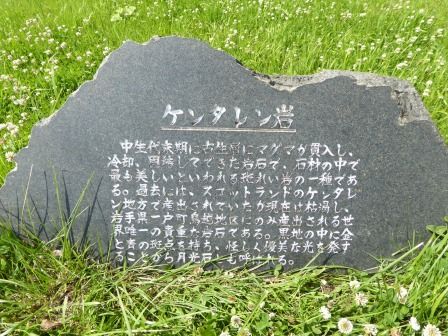 ケンタレン岩
中生代末期に古生層にマグマが貫入し、
冷却、固結してできた岩石で、石材の中で
最も美しいといわれる斑れい岩の一種であ
る。過去には、スコットランドのケンタレ
ン地方で産出されていたが現在は枯渇し、
岩手県一戸町鳥越地区にのみ産出される世
界唯一の貴重な岩石である。黒地の中に金
と青の斑点を持ち、怪しく優美な光を発す
ることから月光石とも呼ばれる。